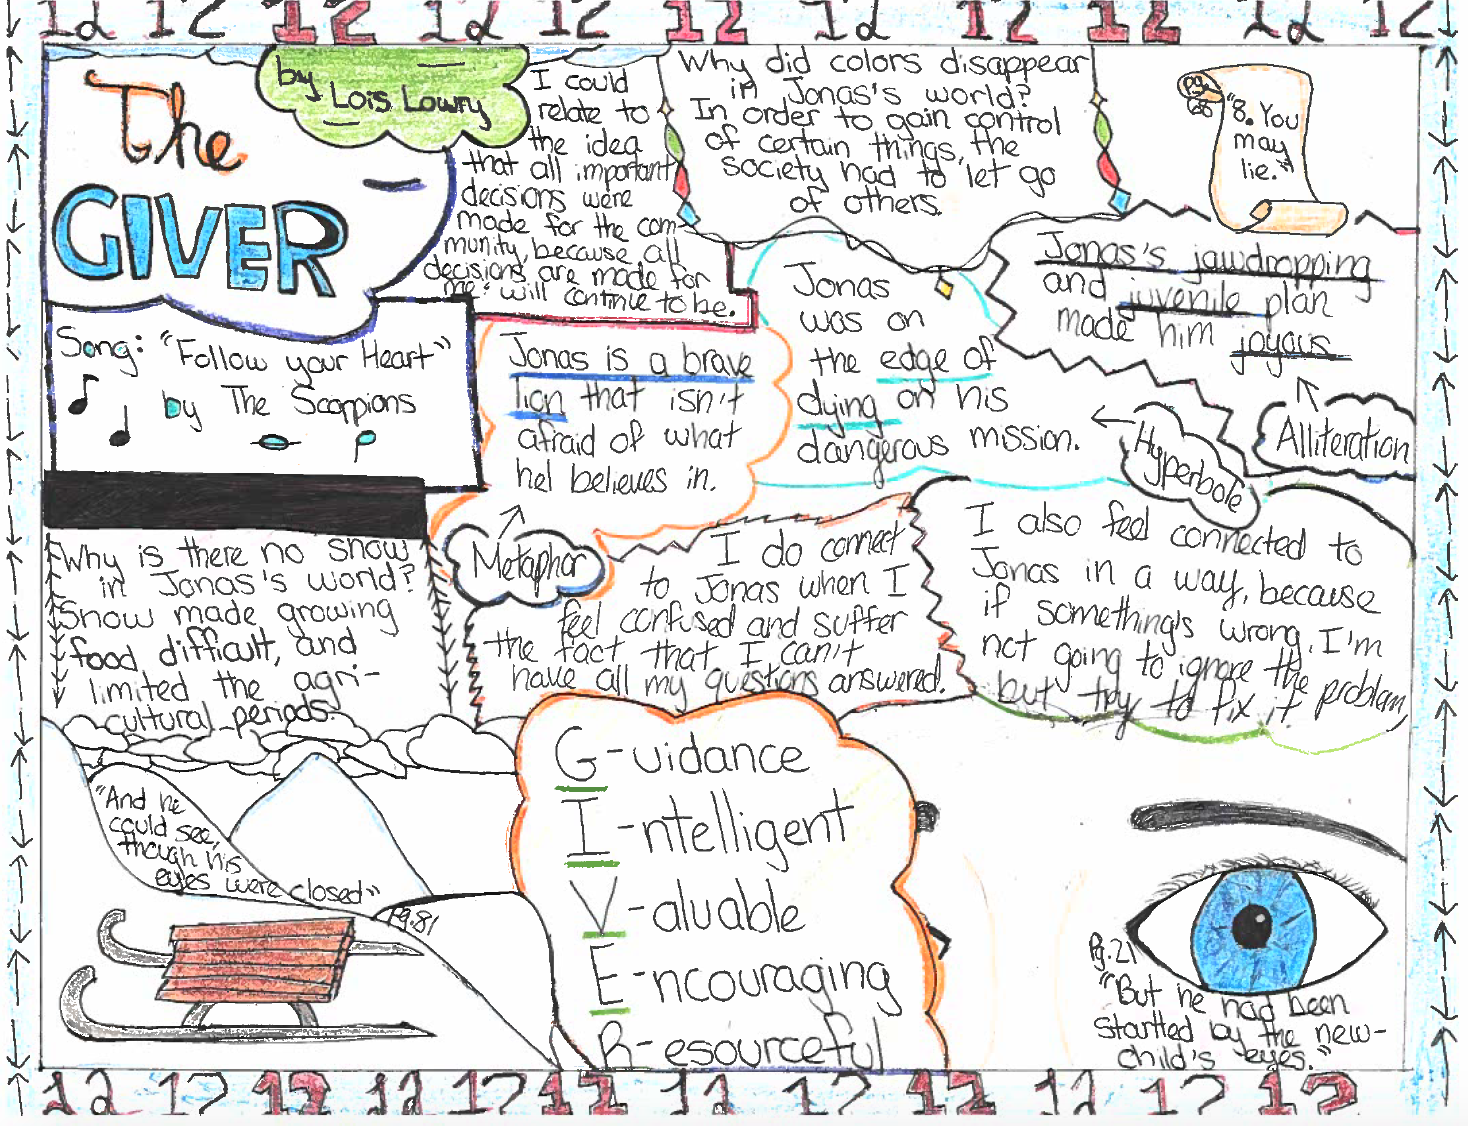 12 12 12 12 12 12 12 12 12 12 12 12
The
GIVER
by
Lois Lowry
I could
relate to
the idea
that all important
decisions were
made for the com-
munity, because all
decisions are made for
me & will continue to be.
Why did colors disappear
in Jonas's world?
In order to gain control
of certain things, the
society had to let go
of others.
Pg
68
"8. You
may
lie."
Song: "Follow your Heart"
by The Scorpions
Jonas is a brave
lion that isn't
afraid of what
he believes in.
Metaphor
Jonas
was on
the edge of
dying on his
dangerous mission.
Hyperbole
Jonas's jawdropping
and juvenile plan
made him joyous
Alliteration
Why is there no snow
in Jonas's world?
Snow made growing
food difficult, and
limited the agri-
cultural periods.
I do connect
to Jonas when I
feel confused and suffer
the fact that I can't
have all my questions answered.
I also feel connected to
Jonas in a way, because
if something's wrong, I'm
not going to ignore the problem,
but try to fix it
"And he
could see,
though his
eyes were closed"
Pg.81
G-uidance
I-ntelligent
V-aluable
E-ncouraging
R-esourceful
Pg. 21
"But he had been
startled by the new-
child's eyes."
12 12 12 12 12 12 12 12 12 12 12 12 12